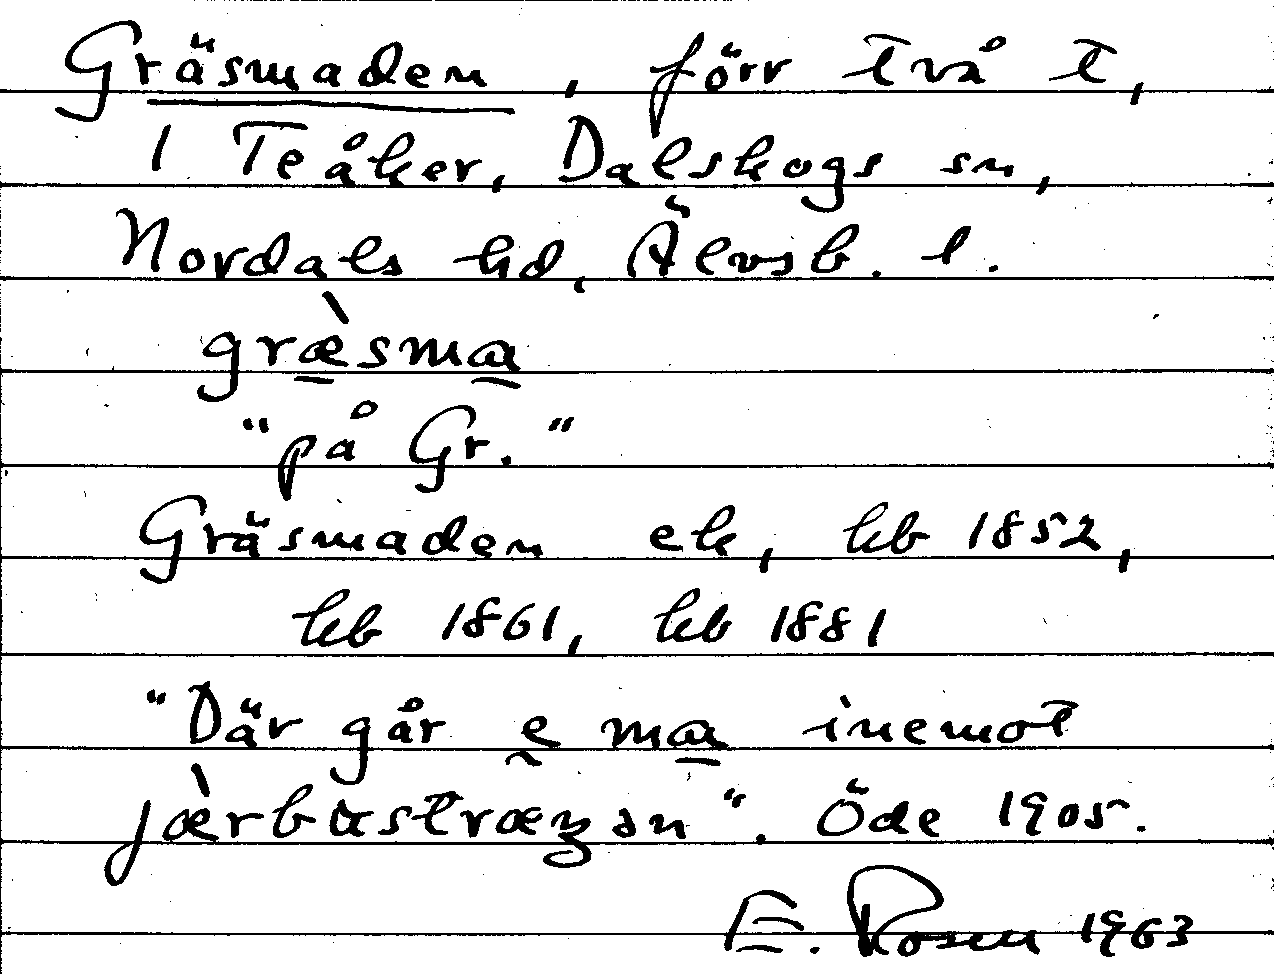 Gräsmaden, förr två t,
1 Teåker, Dalskogs sn,
Nordals hd, Älvsb. l.
græ̀sma
"på Gr."
Gräsmaden ek, hb 1852,
hb 1861, hb 1881
"Där går e ma inemot
Öde 1905.
E. Rosen 1963